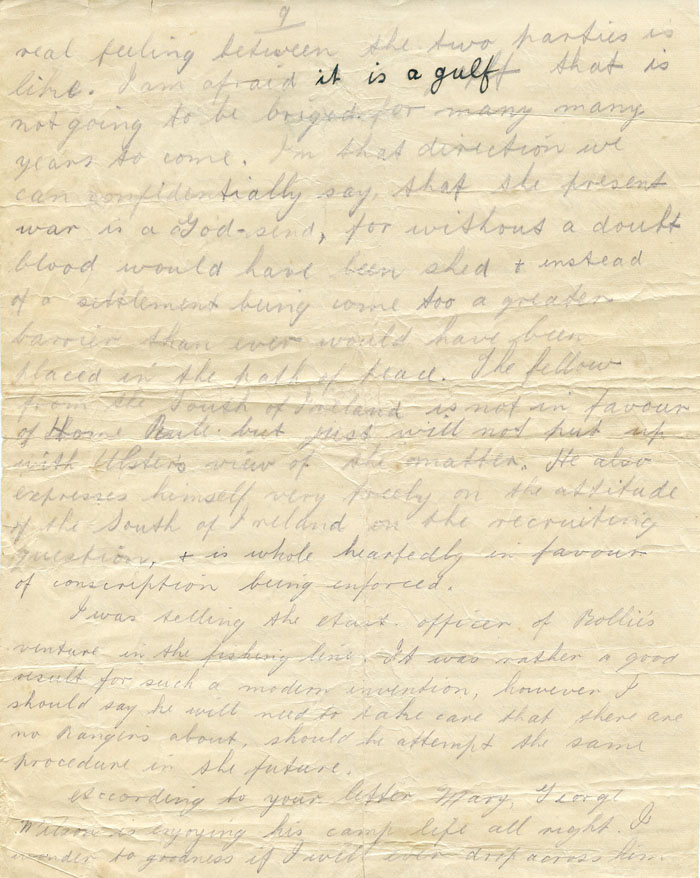 9
real feeling between the two parties is
like. I am afraid it is a gulf that is
not going to be briged for many many
years to come. In that direction we
can confidentially say, that the present
war is a God-send, for without a doubt
blood would have been shed + instead
of a settlement being come too a greater
barrier than ever would have been
placed in the path of peace. The fellow
from the South of Ireland is not in favour
of Home Rule but just will not put up
with Ulster's view of the matter. He also
expresses himself very freely on the attitude
of the South of Ireland on the recruiting
question, + is whole heartedly in favour
of conscription being enforced.
I was telling the officer of Rollie's
venture in the fishing line. It was rather a good
result for such a modern invention, however I
should say he will need to take care that there are
no Rangers about, should he attempt the same
procedure in the future.
According to your letter Mary, George
Wilson is enjoying his camp life all right. I
wonder to goodness if I will ever drop across him.